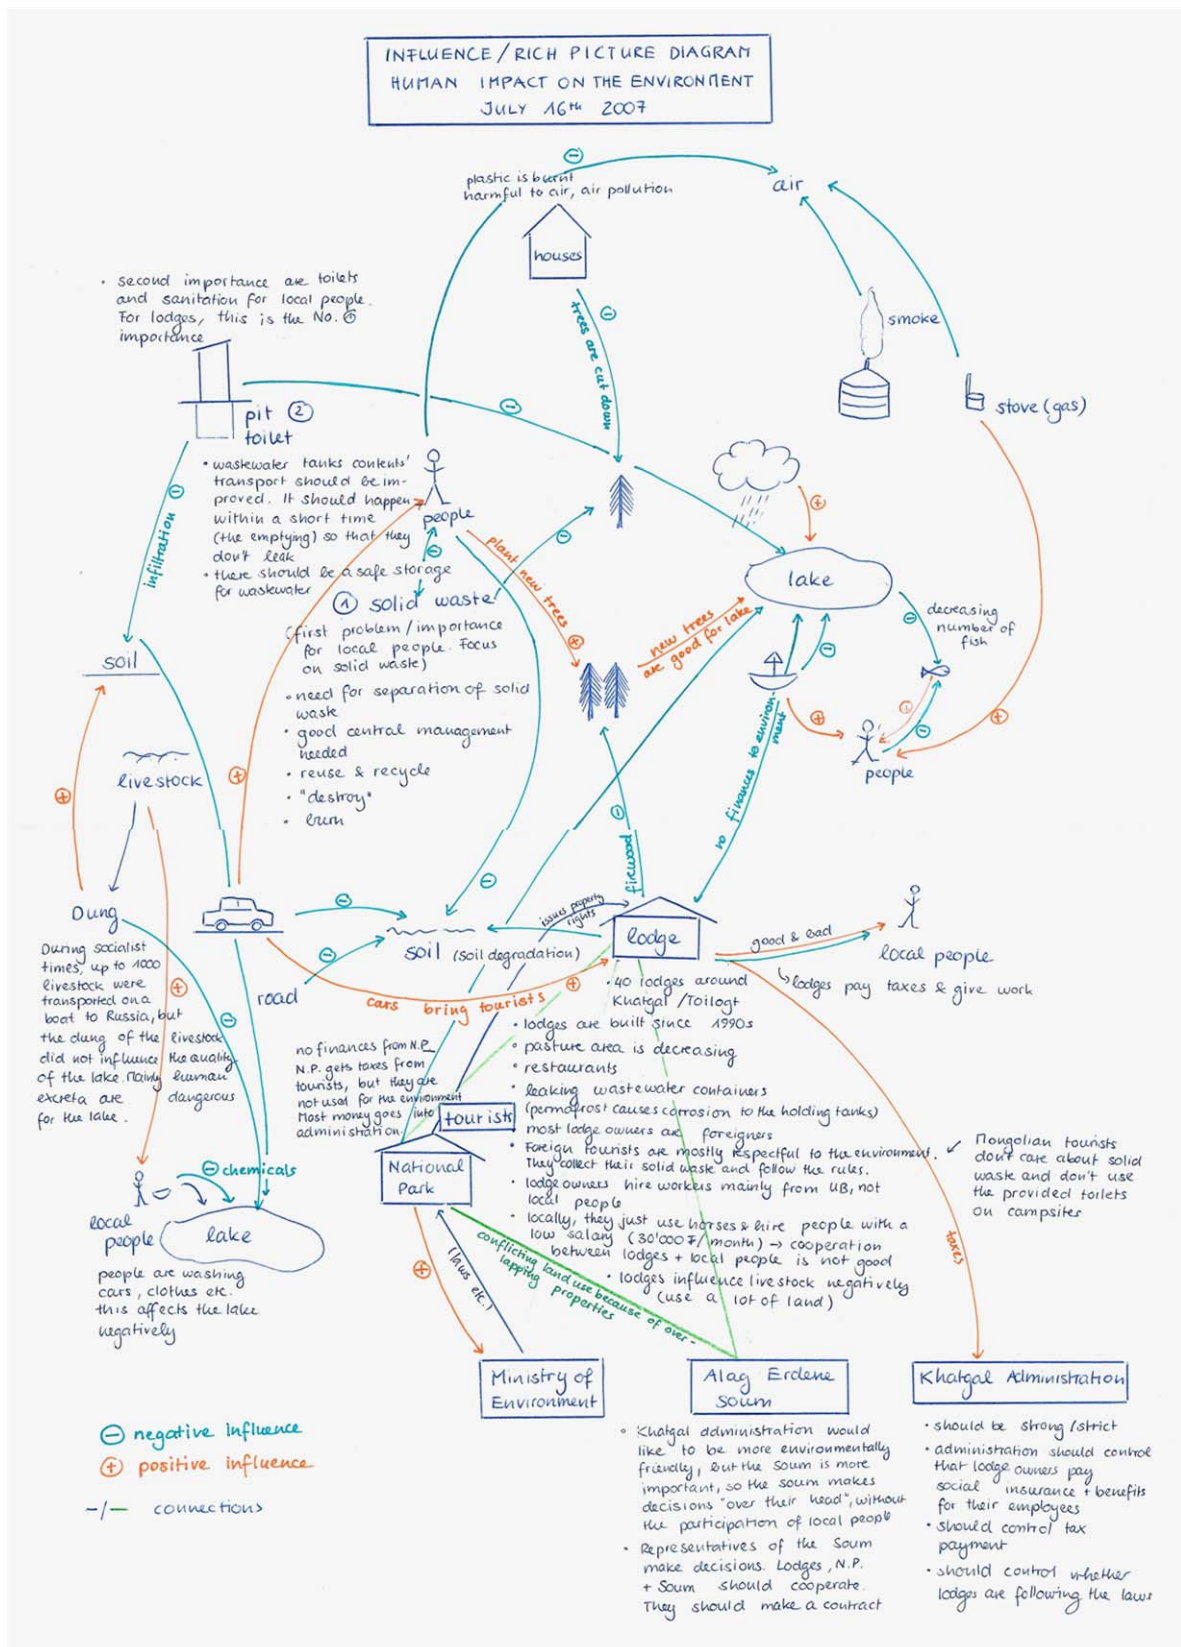 INFLUENCE / RICH PICTURE DIAGRAM
HUMAN IMPACT ON THE ENVIRONMENT
JULY 16th 2007
plastic is burnt
harmful to air, air pollution
air
houses
trees are cut down
smoke
stove (gas)
• second importance are toilets
and sanitation for local people.
For lodges, this is the No. ①
importance
pit ②
toilet
infiltration
• wastewater tanks contents'
transport should be im-
proved. It should happen
within a short time
(the emptying) so that they
don't leak
• there should be a safe storage
for wastewater
people
plant new trees
① solid waste
(first problem / importance
for local people. Focus
on solid waste)
• need for separation of solid
waste
• good central management
needed
• reuse & recycle
• "destroy"
• burn
new trees
are good for lake
lake
decreasing
number of
fish
people
no finances to environ-
ment
firewood
soil
livestock
Dung
During socialist
times, up to 1000
livestock were
transported on a
boat to Russia, but
the dung of the livestock
did not influence the quality
of the lake. Mainly human
excreta are dangerous
for the lake.
road
soil (soil degradation)
issues property
rights
lodge
good & bad
local people
lodges pay taxes & give work
cars bring tourists
• 40 lodges around
Khatgal / Toilogt
• lodges are built since 1990s
• pasture area is decreasing
• restaurants
• leaking wastewater containers
(permafrost causes corrosion to the holding tanks)
most lodge owners are foreigners
• Foreign tourists are mostly respectful to the environment.
They collect their solid waste and follow the rules.
• lodge owners hire workers mainly from UB, not
local people
• locally, they just use horses & hire people with a
low salary (30'000 ₮ / month) → cooperation
between lodges + local people is not good
• lodges influence livestock negatively
(use a lot of land)
Mongolian tourists
don't care about solid
waste and don't use
the provided toilets
on campsites
no finances from N.P.
N.P. gets taxes from
tourists, but they are
not used for the environment
Most money goes into
administration.
tourists
National
Park
chemicals
local
people
lake
people are washing
cars, clothes etc.
this affects the lake
negatively
(laws etc.)
conflicting land use because of over-
lapping properties
taxes
Ministry of
Environment
Alag Erdene
Soum
Khatgal Administration
• Khatgal administration would
like to be more environmentally
friendly, but the Soum is more
important, so the soum makes
decisions "over their head", without
the participation of local people
• Representatives of the Soum
make decisions. Lodges, N.P.
+ Soum should cooperate.
They should make a contract
• should be strong / strict
• administration should control
that lodge owners pay
social insurance + benefits
for their employees
• should control tax
payment
• should control whether
lodges are following the laws
⊖ negative influence
⊕ positive influence
–/– connections